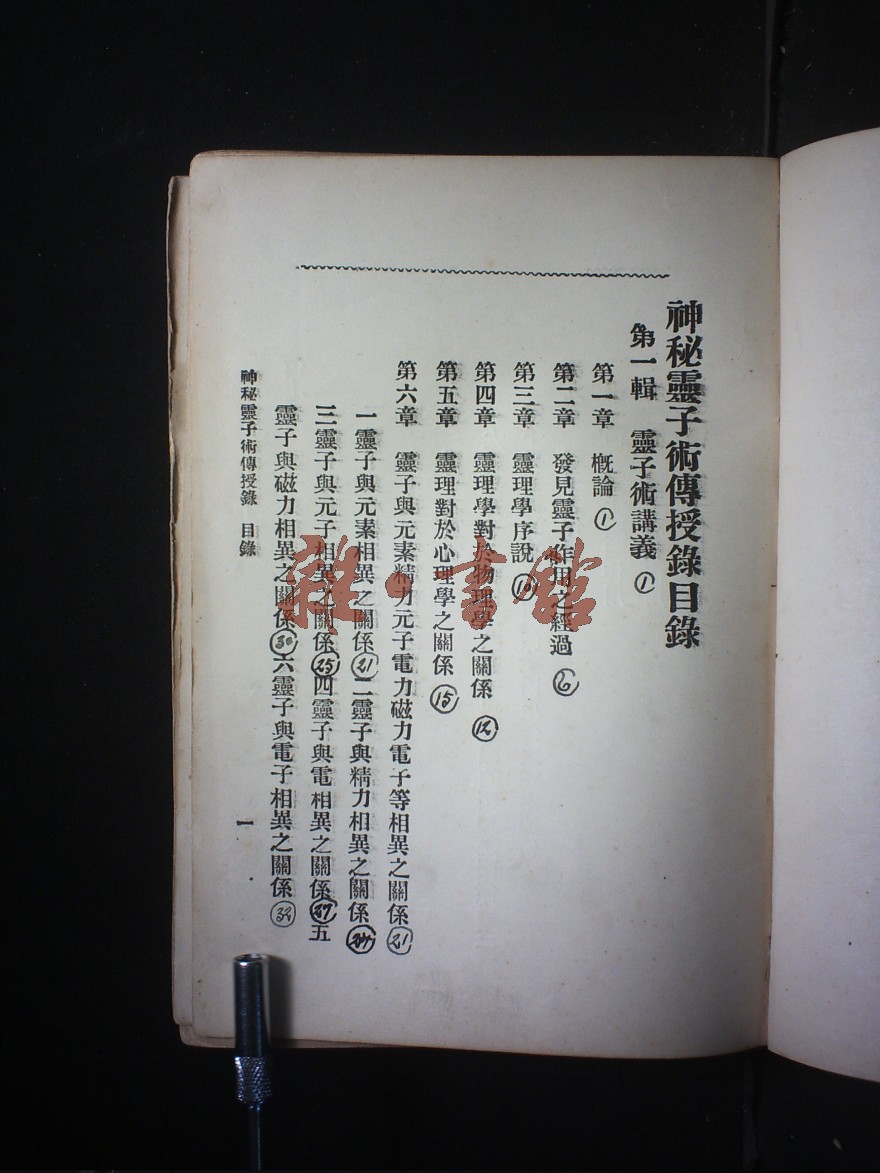 神秘靈子術傳授錄目錄
第一輯 靈子術講義 ①
第一章 槪論 ①
第二章 發見靈子作用之經過 ⑥
第三章 靈理學序說 ⑩
第四章 靈理學對於物理學之關係 ⑫
第五章 靈理對於心理學之關係 ⑮
第六章 靈子與元素精力元子電力磁力電子等相異之關係 ㉑
一靈子與元素相異之關係㉑二靈子與精力相異之關係㉔
三靈子與元子相異之關係㉕四靈子與電相異之關係㉗五
靈子與磁力相異之關係㉚六靈子與電子相異之關係㉜
神秘靈子術傳授錄 目錄
一
雜·書館